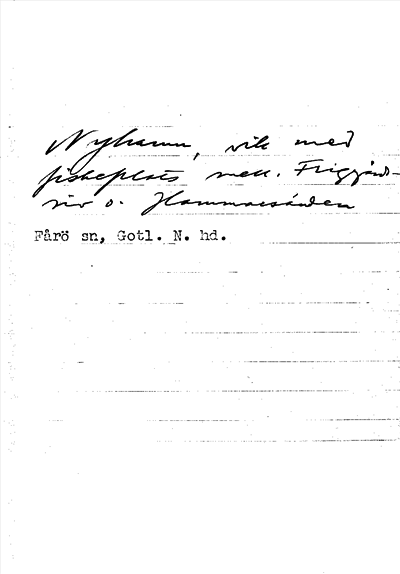 Nyhamn, vik med
fiskeplats mell. Friggårds-
riv o. Hammarsänden
Fårö sn, Gotl. N. hd.